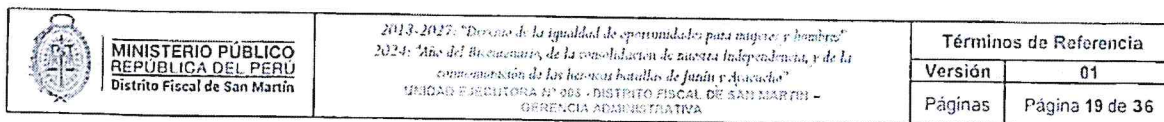 MINISTERIO PÚBLICO
REPÚBLICA DEL PERÚ
Distrito Fiscal de San Martín
2013-2027: "Decenio de la igualdad de oportunidades para mujeres y hombres"
2024: "Año del Bicentenario, de la consolidacion de nuestra Independencia, y de la
conmemoración de las heroicas batallas de Junín y Ayacucho"
UNIDAD EJECUTORA N° 005 - DISTRITO FISCAL DE SAN MARTIN –
GERENCIA ADMINISTRATIVA
Términos de Referencia
Versión 01
Páginas Página 19 de 36